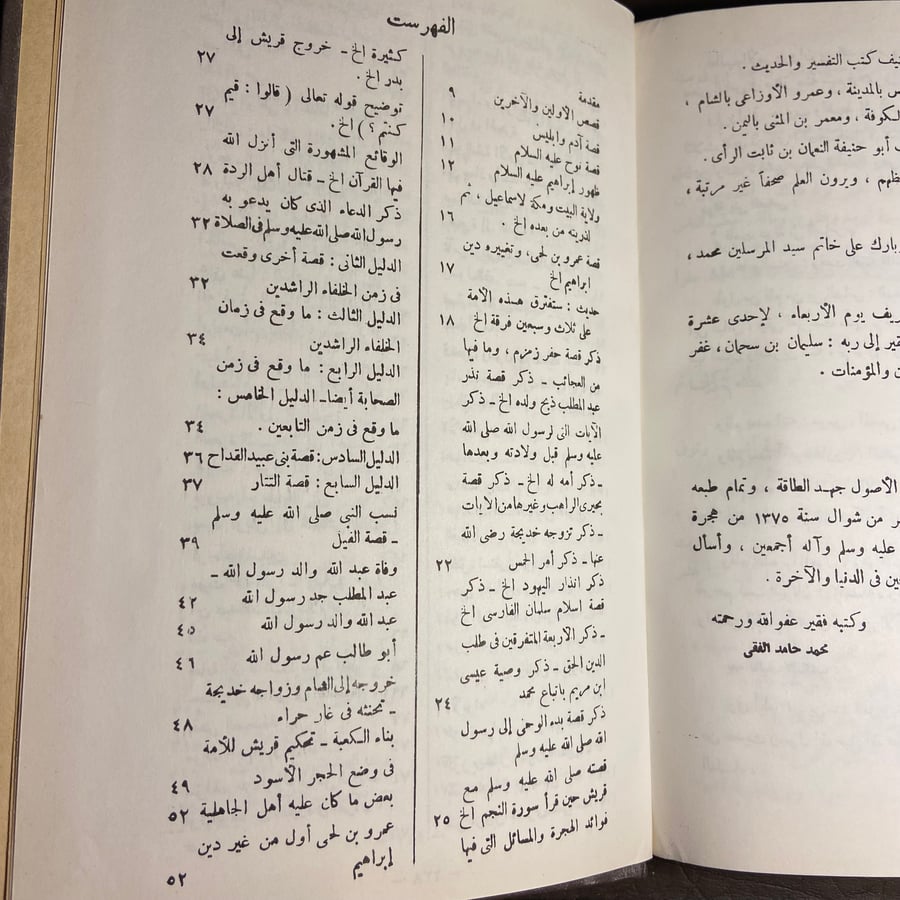 نيف كتب التفسير والحديث .
س بالمدينة ، وعمرو الأوزاعى بالشام ،
لكوفة ، ومعمر بن المثنى باليمن .
أبو حنيفة النعمان بن ثابت الرأى .
ظهم ، ويرون العلم صحفاً غير مرتبة ،
بارك على خاتم سيد المرسلين محمد ،
ريف يوم الأربعاء ، لإحدى عشرة
قير إلى ربه : سليمان بن سحمان ، غفر
ن والمؤمنات .
الأصول جهد الطاقة ، وتمام طبعه
ر من شوال سنة ١٣٧٥ من هجرة
عليه وسلم وآله أجمعين ، وأسأل
ين فى الدنيا والآخرة .
وكتبه فقير عفو الله ورحمته
محمد حامد الفقى
الفهرست
مقدمة ٩
قصص الأولين والآخرين
قصة آدم وإبليس ١٠
قصة نوح عليه السلام ١١
ظهور إبراهيم عليه السلام ١٢
ولاية البيت ومكة لاسماعيل ، ثم
لذريته من بعده الخ . ١٦
قصة عمرو بن لحى، وتغييره دين
ابراهيم الخ ١٧
حديث : ستفترق هذه الأمة
على ثلاث وسبعين فرقة الخ ١٨
ذكر قصة حفر زمزم ، وما فيها
من العجائب ـ ذكر قصة نذر
عبد المطلب ذبح ولده الخ ـ ذكر
الآيات التى لرسول الله صلى الله
عليه وسلم قبل ولادته وبعدها
ـ ذكر أمه له الخ ـ ذكر قصة
بحيرى الراهب وغيرها من الايات
ـ ذكر تزوجه خديجة رضى الله
عنها ـ ذكر أمر الحمس ٢٢
ذكر انذار اليهود الخ ـ ذكر
قصة اسلام سلمان الفارسى الخ
ـ ذكر الاربعة المتفرقين فى طلب
الدين الحق ـ ذكر وصية عيسى
ابن مريم باتباع محمد ٢٤
ذكر قصة بدء الوحى إلى رسول
الله صلى الله عليه وسلم
قصته صلى الله عليه وسلم مع
قريش حين قرأ سورة النجم الخ ٢٥
فوائد الهجرة والمسائل التى فيها
كثيرة الخ ـ خروج قريش إلى
بدر الخ . ٢٧
توضيح قوله تعالى ( قالوا : فيم
كنتم ؟ ) الخ . ٢٧
الوقائع المشهورة التى أنزل الله
فيها القرآن الخ ـ قتال أهل الردة ٢٨
ذكر الدعاء الذى كان يدعو به
رسول الله صلى الله عليه وسلم فى الصلاة ٣٢
الدليل الثانى : قصة أخرى وقعت
فى زمن الخلفاء الراشدين ٣٢
الدليل الثالث : ما وقع فى زمان
الخلفاء الراشدين ٣٤
الدليل الرابع : ما وقع فى زمن
الصحابة أيضا ـ الدليل الخامس :
ما وقع فى زمن التابعين . ٣٤
الدليل السادس : قصة بنى عبيد القداح ٣٦
الدليل السابع : قصة التتار ٣٧
نسب النبى صلى الله عليه وسلم
ـ قصة الفيل ٣٩
وفاة عبد الله والد رسول الله ـ
عبد المطلب جد رسول الله ٤٢
عبد الله والد رسول الله ٤٥
أبو طالب عم رسول الله ٤٦
خروجه إلى الشام وزواجه خديجة
ـ تحنثه فى غار حراء ٤٨
بناء الكعبة ـ تحكيم قريش للأمة
فى وضع الحجر الأسود ٤٩
بعض ما كان عليه أهل الجاهلية ٥٢
عمرو بن لحى أول من غير دين
إبراهيم ٥٢